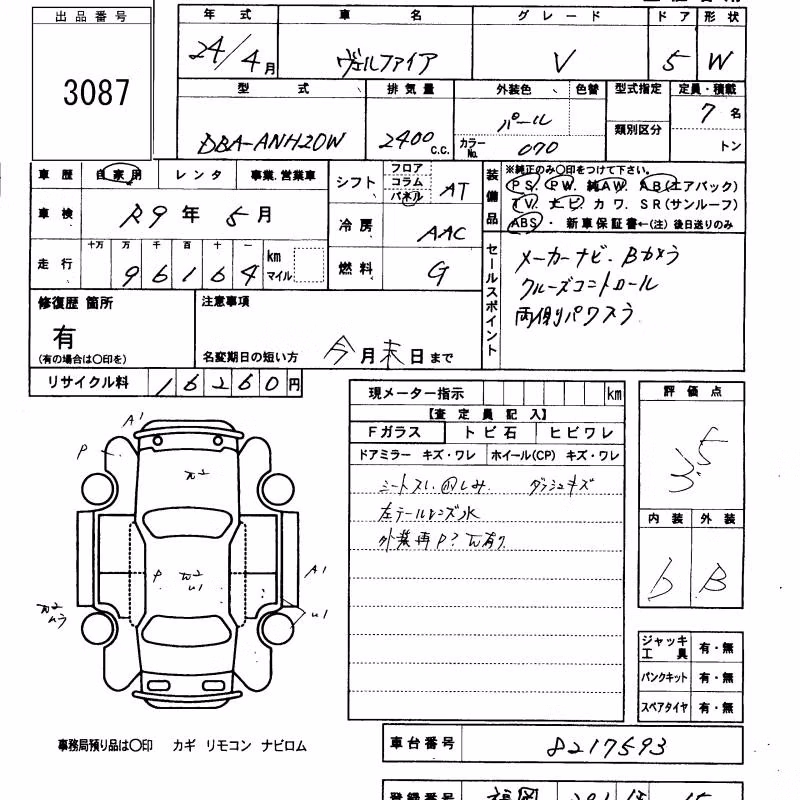 出品番号
3087
年式 車名 グレード ドア 形状
24/4月 ヴェルファイア V 5 W
型式 排気量 外装色 色替 型式指定 定員・積載
DBA-ANH20W 2400c.c. パール カラーNo. 070 類別区分 7名 トン
車歴 自家用 レンタ 事業.営業車
車検 R9年5月
走行 十万 万 千 百 十 一
96164 km マイル
シフト フロア コラム パネル AT
冷房 AAC
燃料 G
装備品 ※純正のみ〇印をつけて下さい。
PS. PW. 純AW. AB(エアバック)
TV. ナビ. カワ. SR(サンルーフ)
ABS・ 新車保証書←(注) 後日送りのみ
セールスポイント
メーカーナビ.Bカメラ
クルーズコントロール
両側パワスラ
修復歴 箇所
有
(有の場合は〇印を)
注意事項
名変期日の短い方 今月末日まで
リサイクル料 16260円
現メーター指示 km
【査定員記入】
Fガラス トビ石 ヒビワレ
ドアミラー キズ・ワレ ホイール(CP) キズ・ワレ
シートスレ. 内しみ. ダッシュキズ
左テールレンズ水
外装再P?
評価点
3.5
内装 外装
b B
A1
P
A1
P
U1
U1
ジャッキ工具 有・無
パンクキット 有・無
スペアタイヤ 有・無
事務局預り品は〇印 カギ リモコン ナビロム
車台番号 8217593
登録番号 福岡